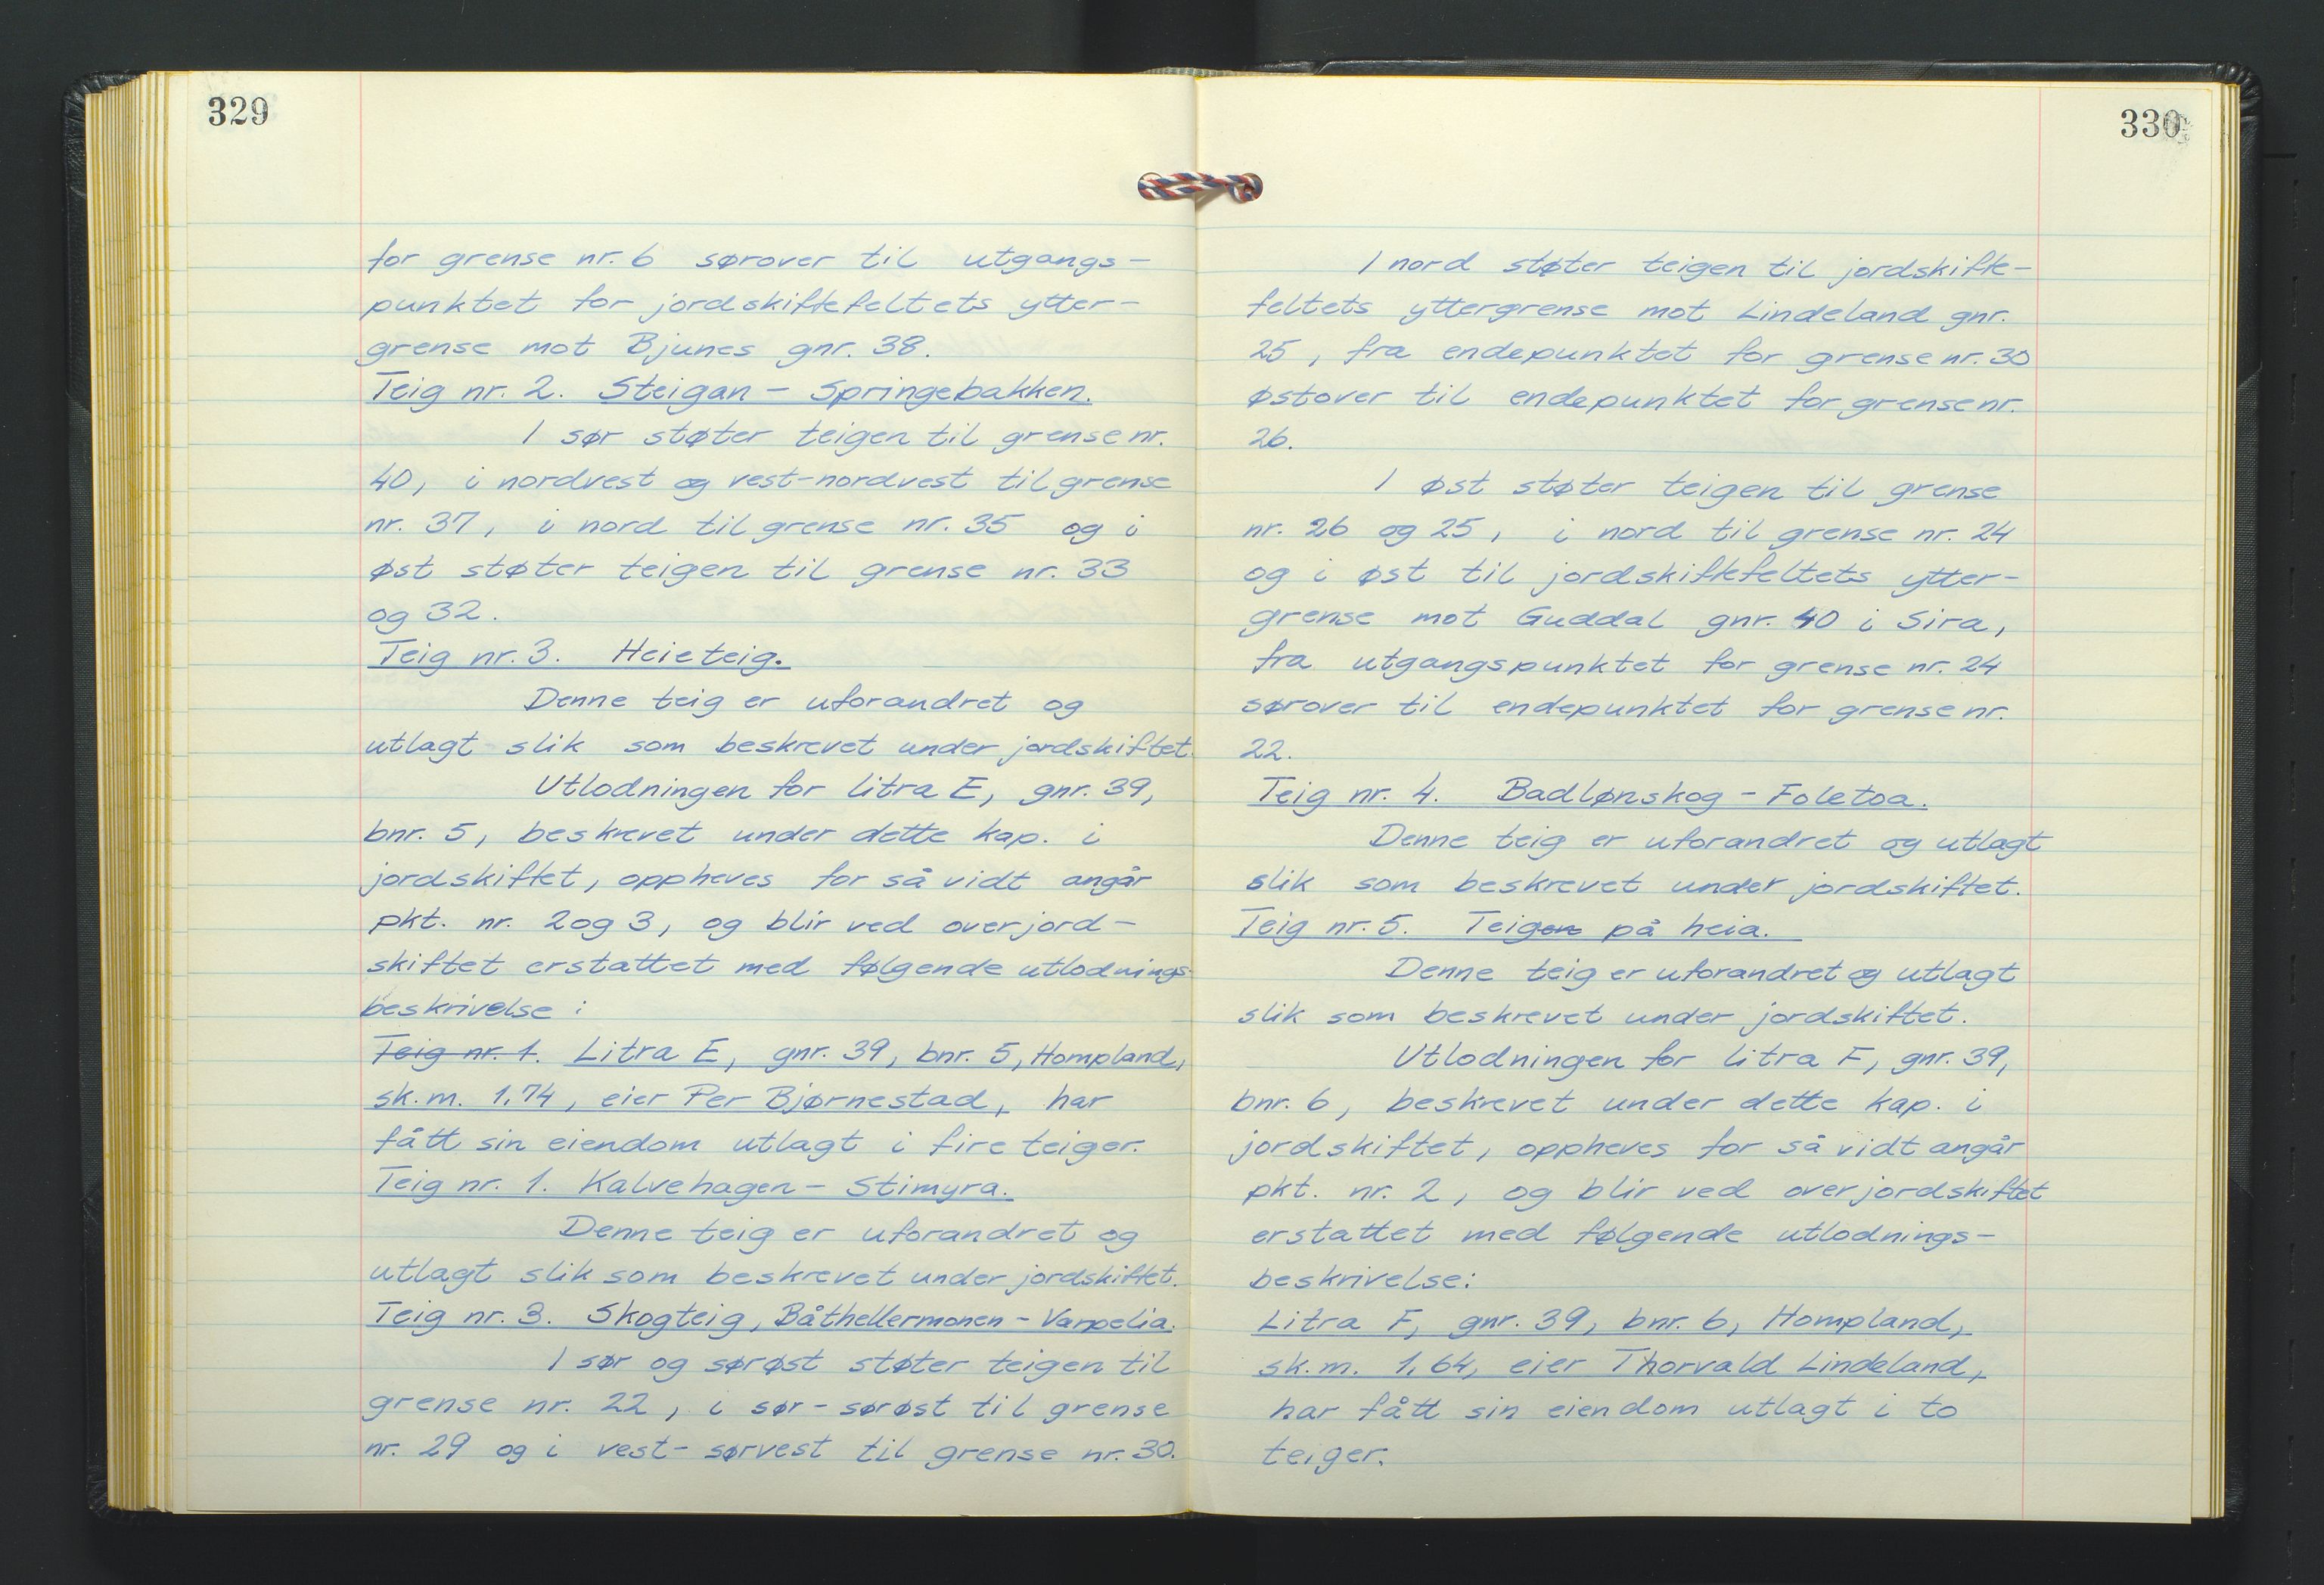 329
for grense nr. 6 sørover til utgangs-
punktet for jordskiftefeltets ytter-
grense mot Bjunes gnr. 38.
Teig nr. 2. Steigan - Springebakken.
I sør støter teigen til grense nr.
40, i nordvest og vest-nordvest til grense
nr. 37, i nord til grense nr. 35 og i
øst støter teigen til grense nr. 33
og 32.
Teig nr. 3. Heieteig.
Denne teig er uforandret og
utlagt slik som beskrevet under jordskiftet.
Utlodningen for litra E, gnr. 39,
bnr. 5, beskrevet under dette kap. i
jordskiftet, oppheves for så vidt angår
pkt. nr. 2 og 3, og blir ved overjord-
skiftet erstattet med følgende utlodnings-
beskrivelse:
Teig nr. 1. Litra E, gnr. 39, bnr. 5, Hompland,
sk.m. 1,74, eier Per Bjørnestad, har
fått sin eiendom utlagt i fire teiger.
Teig nr. 1. Kalvehagen - Stimyra.
Denne teig er uforandret og
utlagt slik som beskrevet under jordskiftet.
Teig nr. 3. Skogteig, Båthellermonen - Varpelia.
I sør og sørøst støter teigen til
grense nr. 22, i sør-sørøst til grense
nr. 29 og i vest-sørvest til grense nr. 30.
330
I nord støter teigen til jordskifte-
feltets yttergrense mot Lindeland gnr.
25, fra endepunktet for grense nr. 30
østover til endepunktet for grense nr.
26.
I øst støter teigen til grense
nr. 26 og 25, i nord til grense nr. 24
og i øst til jordskiftefeltets ytter-
grense mot Guddal gnr. 40 i Sira,
fra utgangspunktet for grense nr. 24
sørover til endepunktet for grense nr.
22.
Teig nr. 4. Badlønskog - Foletoa.
Denne teig er uforandret og utlagt
slik som beskrevet under jordskiftet.
Teig nr. 5. Teigen på heia.
Denne teig er uforandret og utlagt
slik som beskrevet under jordskiftet.
Utlodningen for litra F, gnr. 39,
bnr. 6, beskrevet under dette kap. i
jordskiftet, oppheves for så vidt angår
pkt. nr. 2, og blir ved overjordskiftet
erstattet med følgende utlodnings-
beskrivelse:
Litra F, gnr. 39, bnr. 6, Hompland,
sk.m. 1,64, eier Thorvald Lindeland,
har fått sin eiendom utlagt i to
teiger.